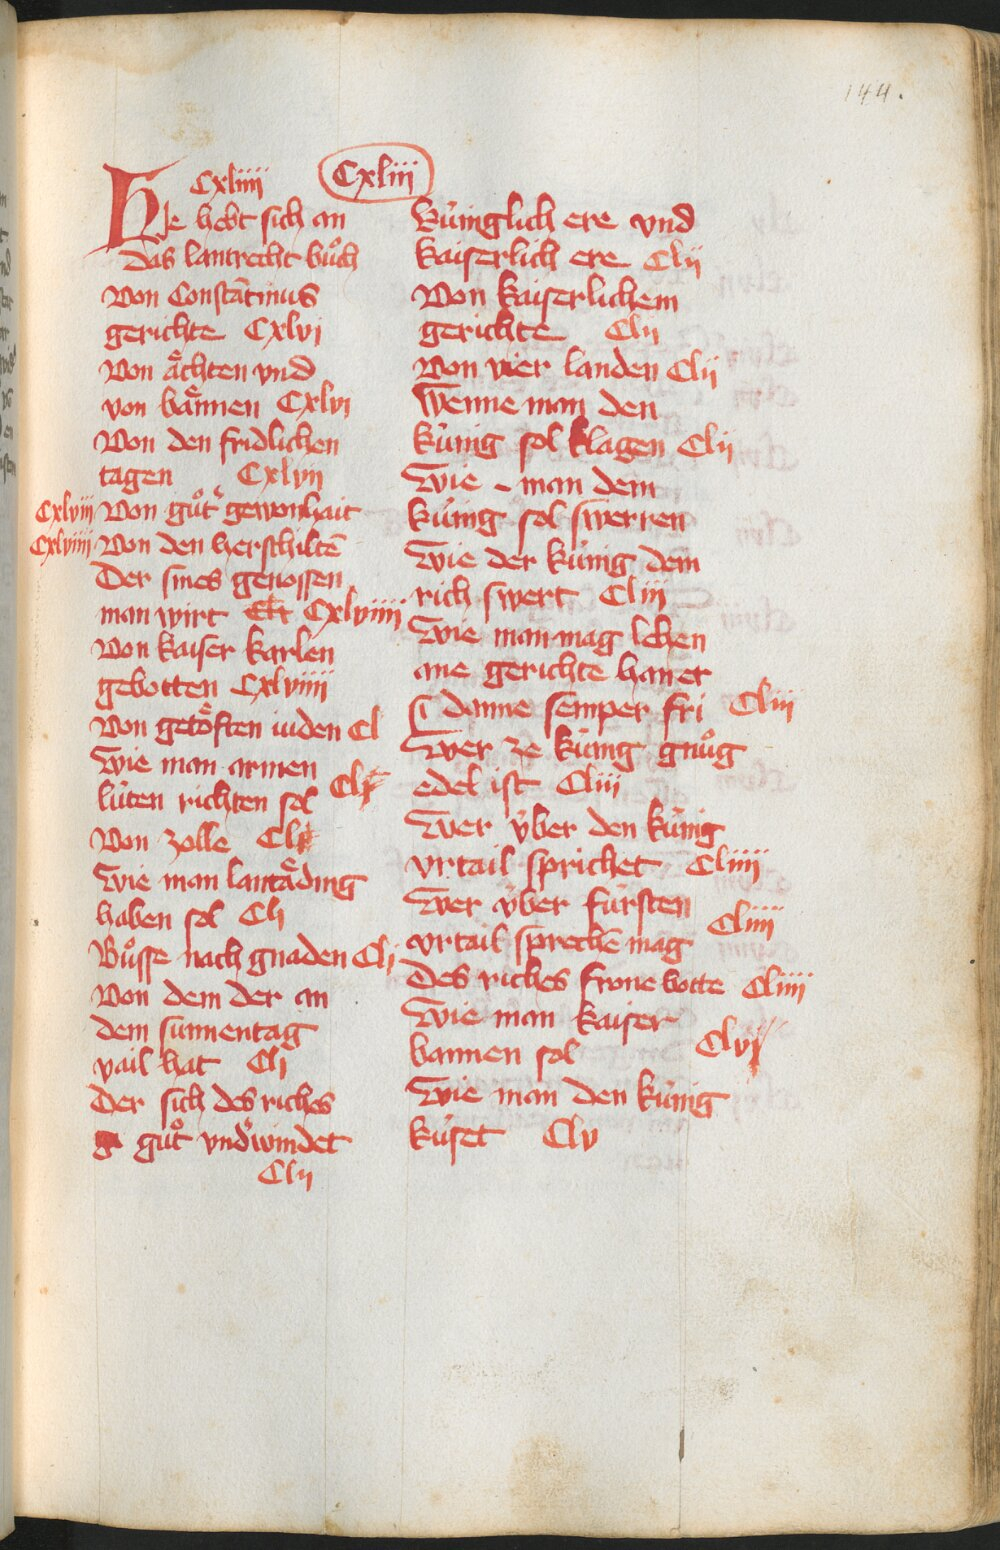 144.
Cxliii
Cxliiii
Hie hebt sich an
Das lantrecht bůch
Von Constātinus
gerichte Cxlvi
Von åchten vnd
von bånnen Cxlvi
Von den fridlichen
tagen Cxlvii
Cxlviii Von gůt gewonhait
Cxlviiii Von den herschiltē
Der sines genossen
man wirt Cxlviiii
Von kaiser karlen
gebotten Cxlviiii
Von getöften iuden Cl
Wie man armen
lúten richten sol Cl
Von zolle Cl
Wie man lantåding
haben sol Cli
Bůsse nach gnaden Cli
Von dem der an
dem sunnentag
vail hat Cli
Der sich des riches
gůt vnd'windet
Clii
Kúniglich ere vnd
kaiserlich ere Clii
Von kaiserlichem
gerichte Clii
Von vier landen Clii
Wenne man den
kúnig sol klagen Clii
Wie man dem
kúnig sol swerren
Wie der kúnig dem
rich swert Cliii
Wie man mag lehen
ane gerichte han er
danne semper fri Cliii
Wer ze kúnig gnůg
edel ist Cliii
Wer vber den kúnig
vrtail sprichet Cliiii
Wer vber fúrsten
vrtail sprechē mag Cliiii
Des riches frone botte Cliiii
Wie man kaiser
bannen sol Clv
Wie man den kúnig
kúset Clv